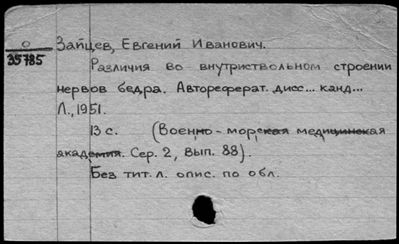 О
35785
Зайцев, Евгений Иванович.
Различия во внутриствольном строении
нервов бедра. Автореферат. дисс... канд...
Л., 1951.
13 с. (Военно-морская медицинская
академия. Сер. 2, вып. 88).
Без тит. л. опис. по обл.